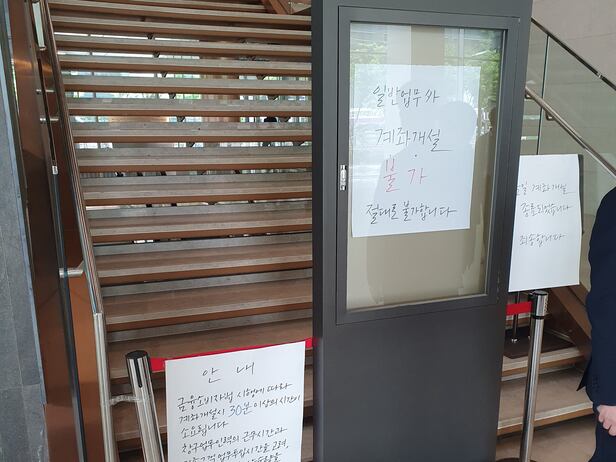 일반업무와
계좌개설
불가
절대로 불가합니다
안 내
금융소비자법 시행에 따라
계좌개설시 30분 이상의 시간이
소요됩니다
창구업무인력의 근무시간과
업무투입시간을 고려,
일 계좌개설
종료되었습니다
죄송합니다